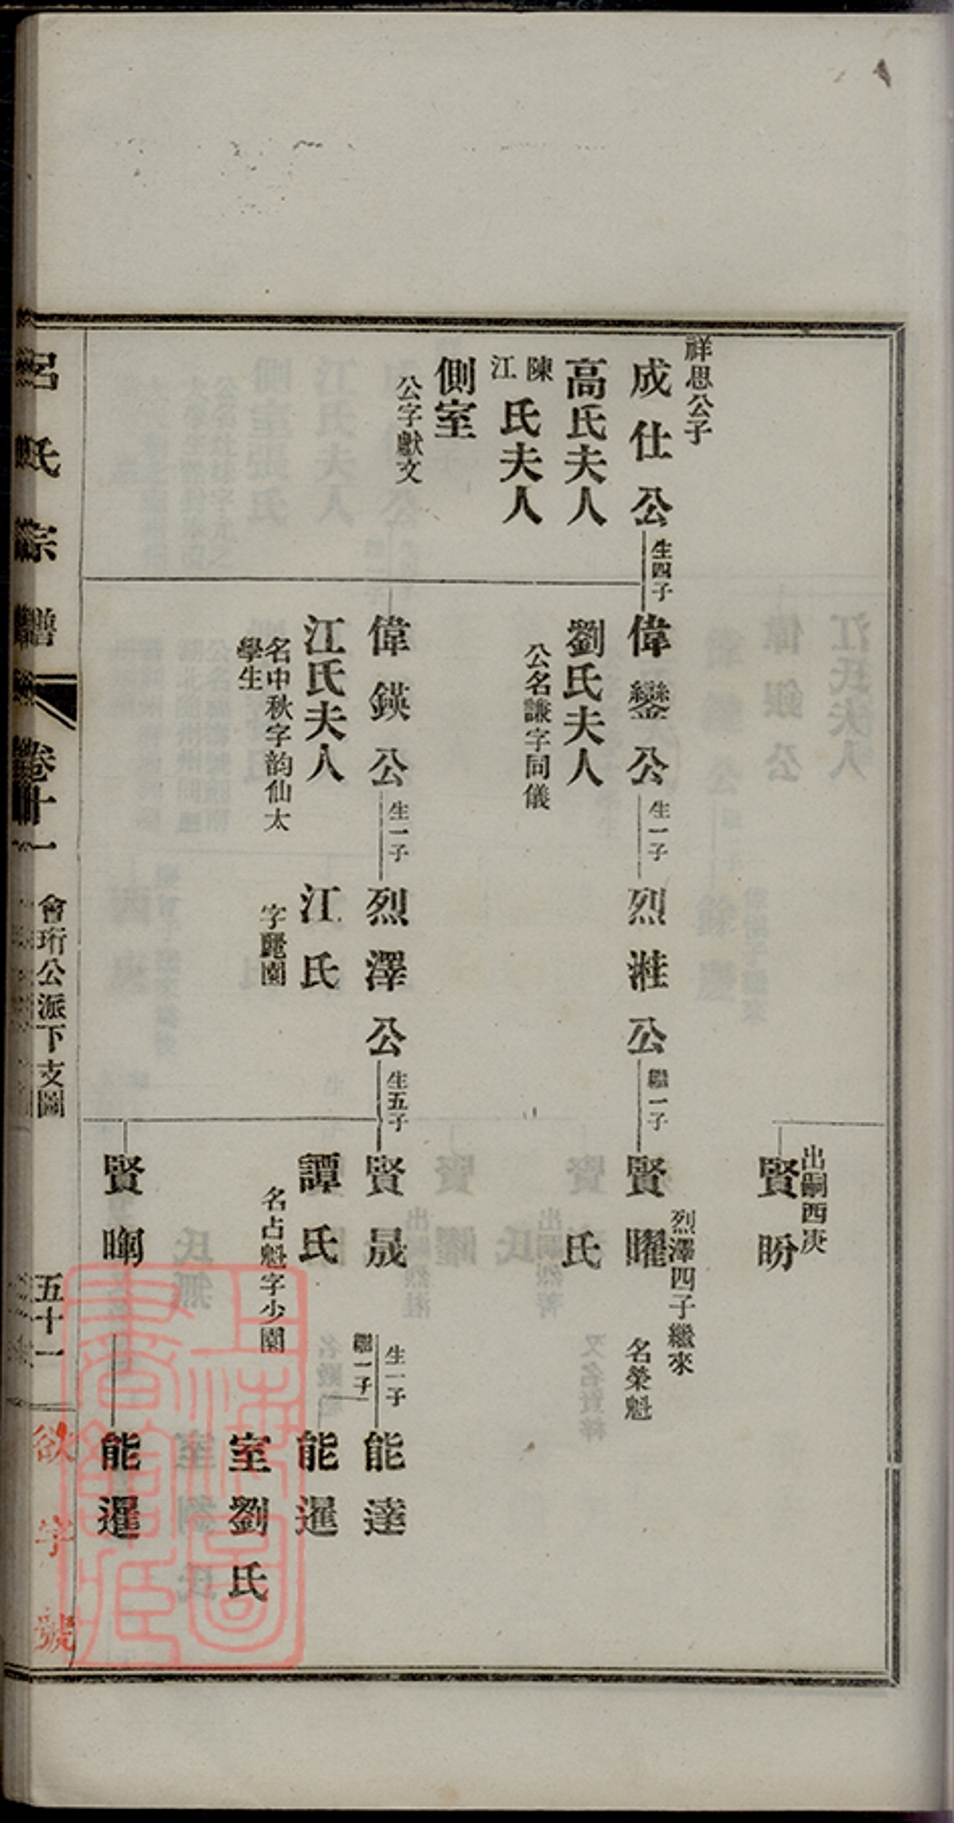 祥思公子
成仕公
生四子
高氏夫人
陳江氏夫人
側室
公字獻文
偉鑾公
生一子
劉氏夫人
公名謙字同儀
偉鍈公
生一子
江氏夫人
名中秋字韵仙太
學生
烈溎公
繼一子
烈澤公
生五子
江氏
字麗園
出嗣西庚
賢盼
烈澤四子繼來
賢矅
名榮魁
氏
賢晟
生一子
繼一子
譚氏
名占魁字少園
賢晍
能達
能暹
室劉氏
能暹
呂氏宗譜
卷十一
會珩公派下支圖
五十一
欲字號
上海圖書館藏